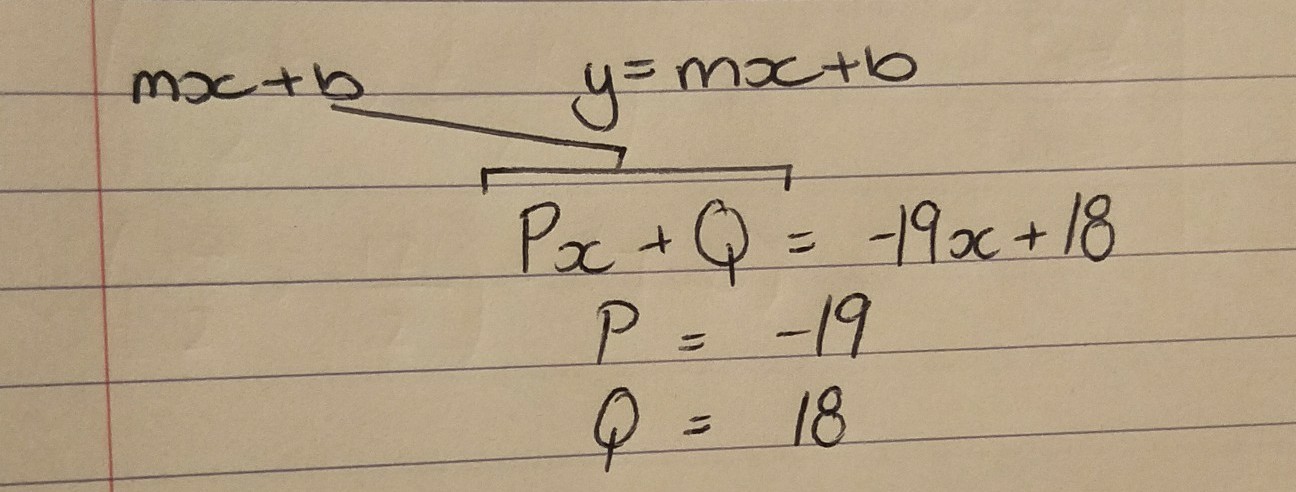 mx+b y=mx+b
Px + Q = -19x + 18
P = -19
Q = 18